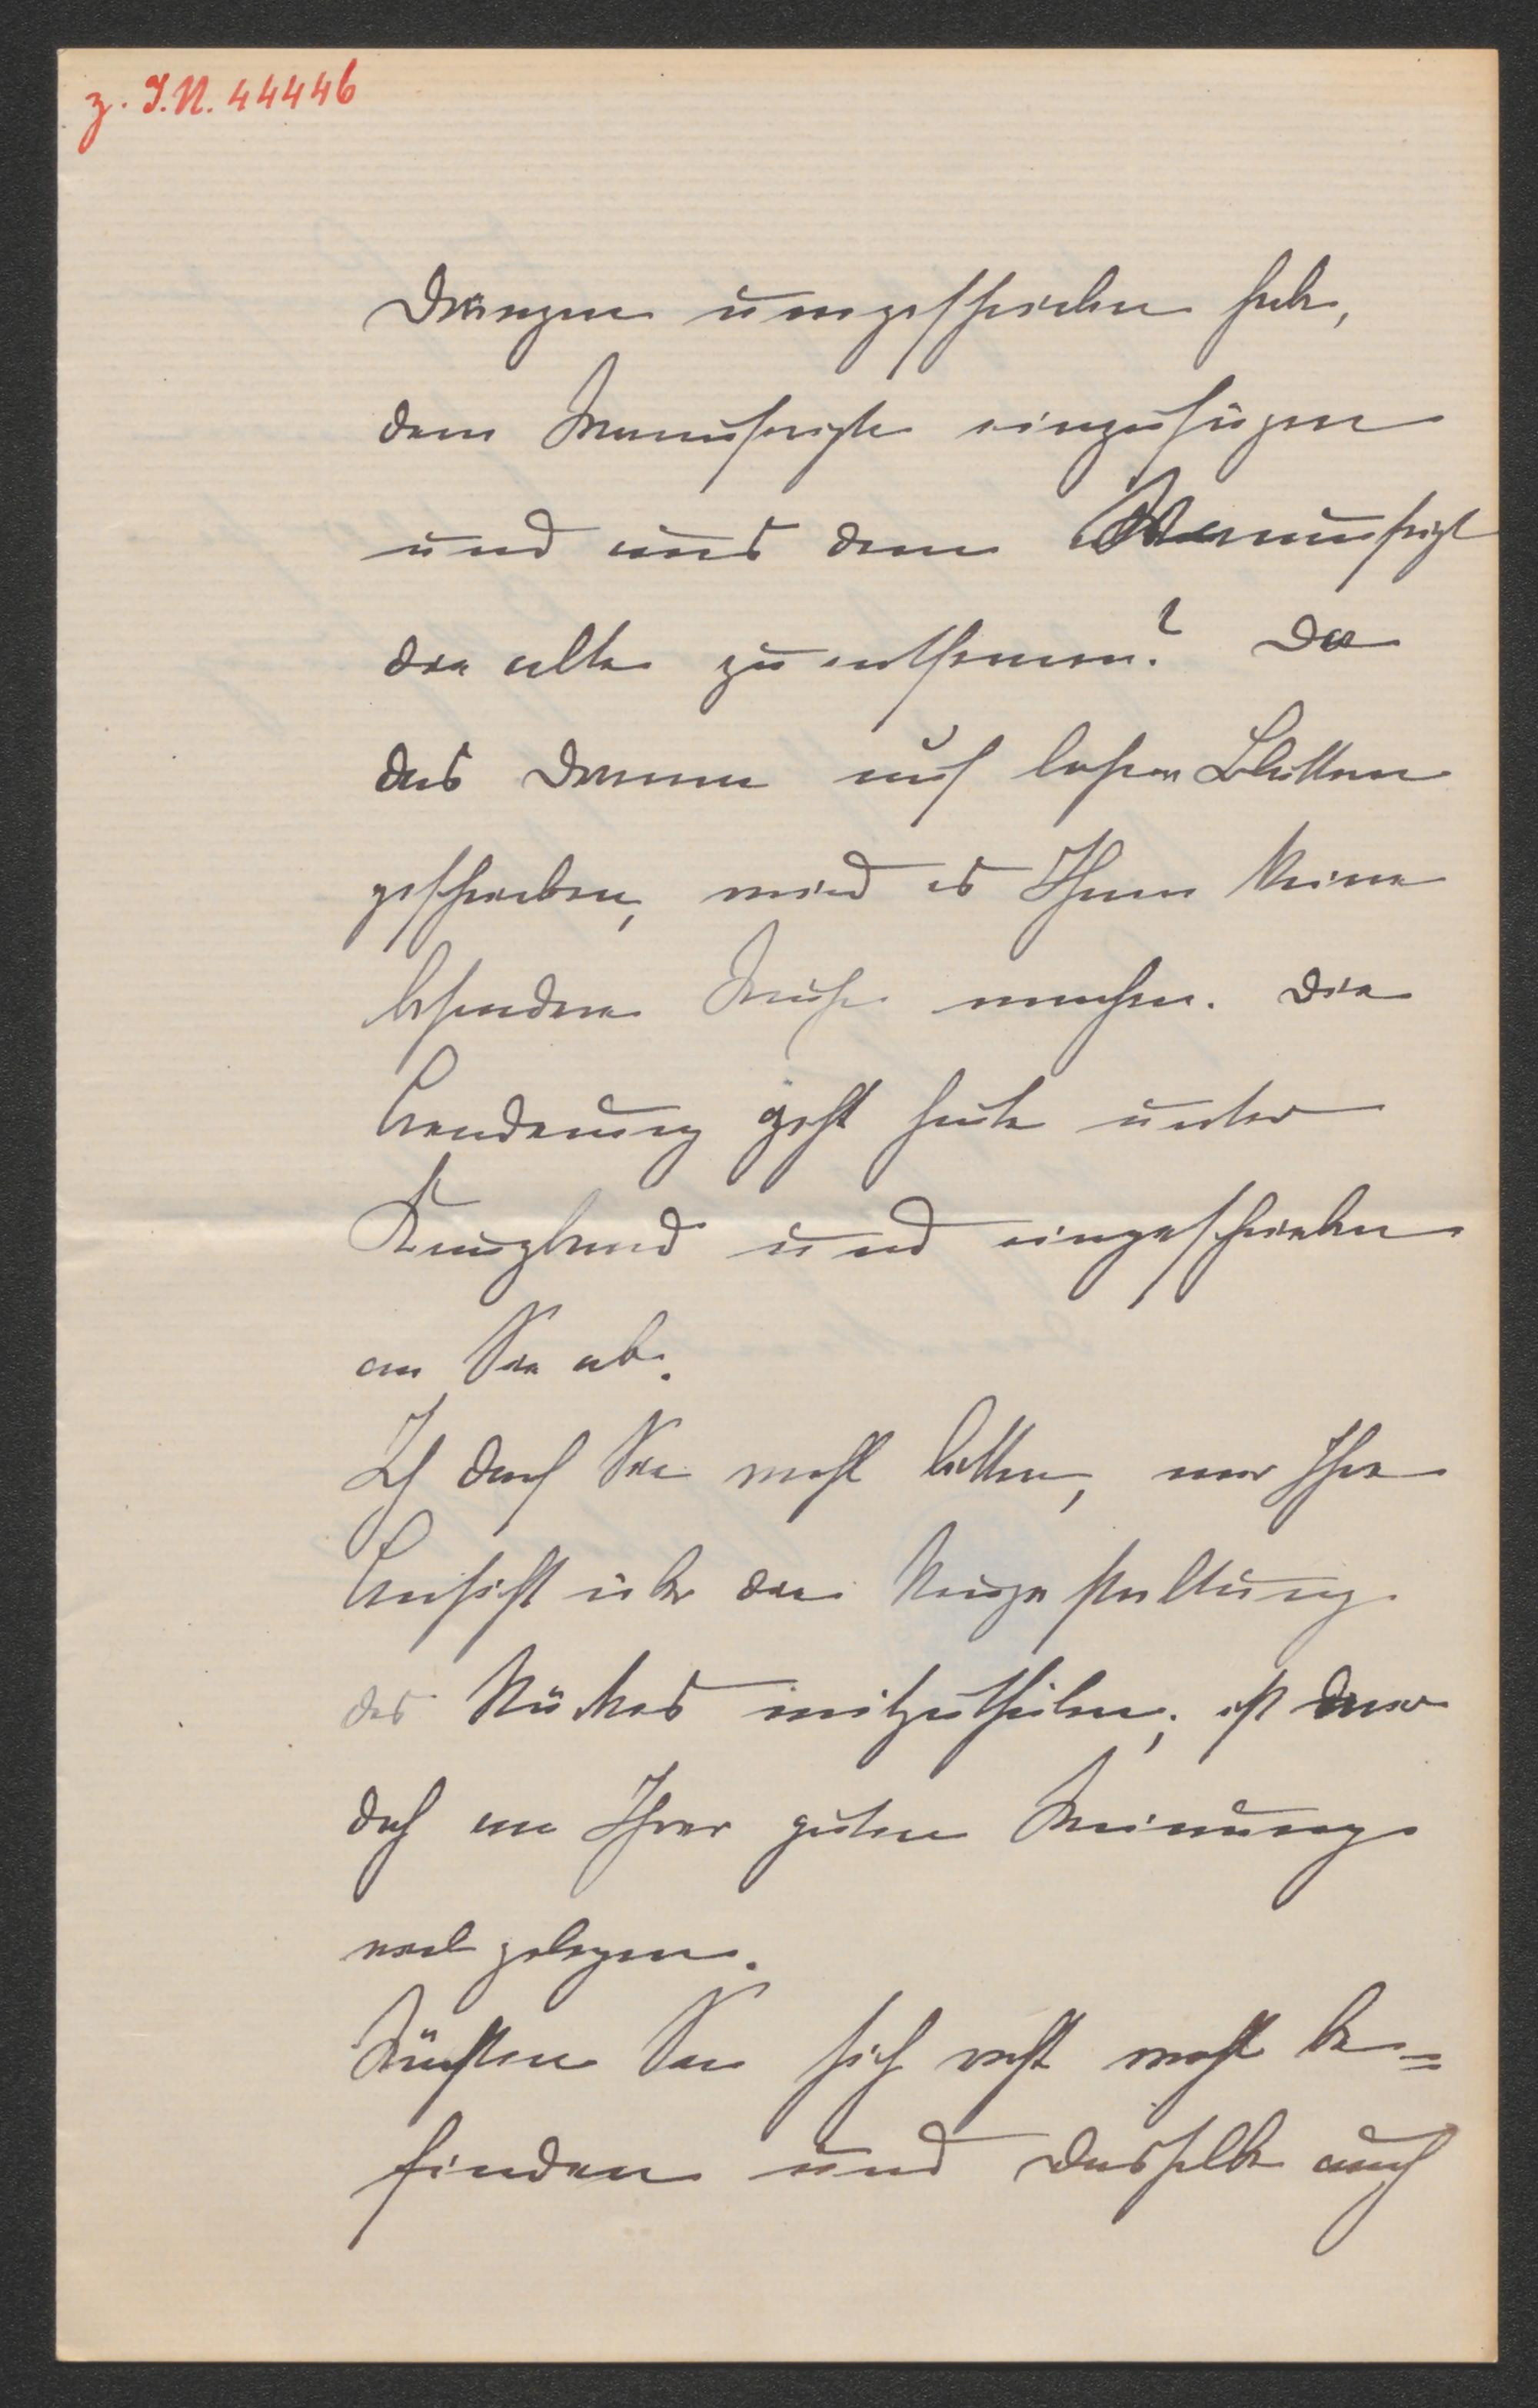 z. I.N. 44446
Drängen umgeschrieben habe,
dem Manuscripte einzufügen
und aus dem Manuscript
die alte zu entfernen? Da
das Drama auf losen Blättern
geschrieben, wird es Ihnen keine
besondere Mühe machen. Die
Aenderung geht heute unter
Kreuzband und eingeschrieben
an Sie ab.
Ich darf Sie wohl bitten, mir Ihre
Ansicht über die Neugestaltung
des Stückes mitzutheilen; ist
doch an Ihrer guten Meinung
viel gelegen.
Möchten Sie sich recht wohl be=
finden und dasselbe auch